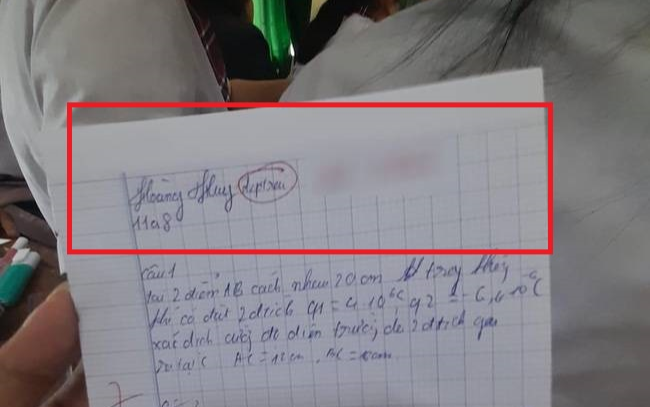 Hoàng Huy đẹptrai
11a8
Câu 1
Tại 2 điểm AB cách nhau 20cm trong không
khí có đặt 2 đtích q1 = 4.10⁻⁶C, q2 = -6,4.10⁻⁶C
xác định cường độ điện trường do 2 đtích gây
ra tại C AC = 12cm,